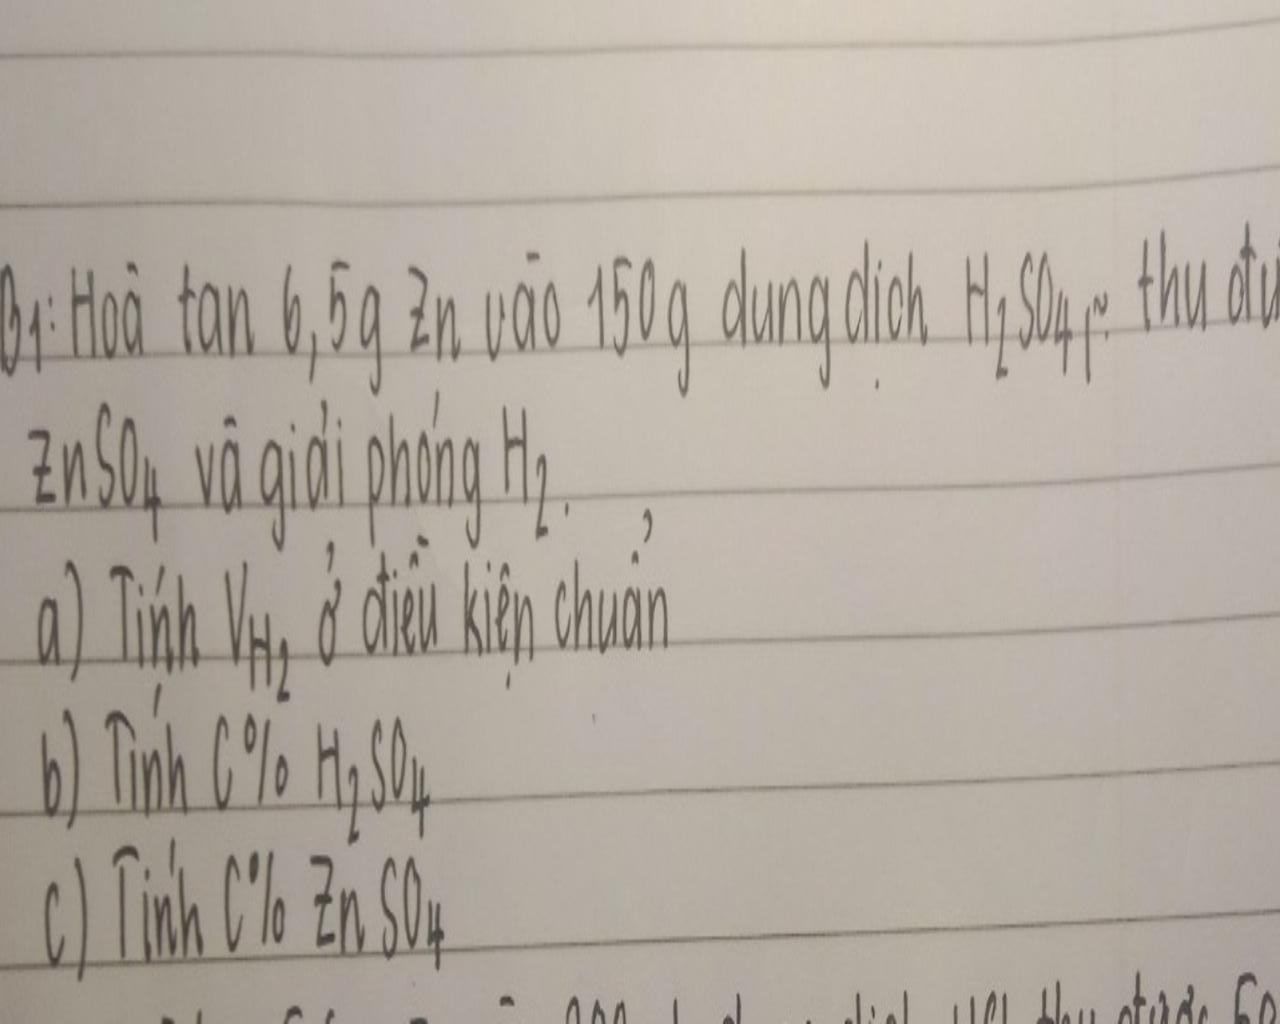 B1: Hoà tan 6,5g Zn vào 150g dung dịch H₂SO₄, thu
ZnSO₄ và giải phóng H₂.
a) Tính V_H₂ ở điều kiện chuẩn
b) Tính C% H₂SO₄
c) Tính C% ZnSO₄